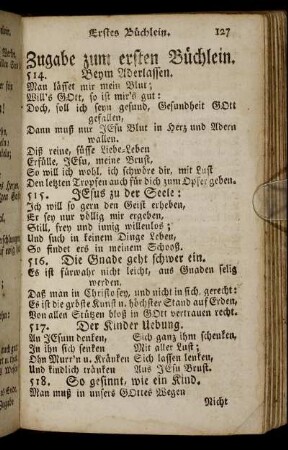 Erstes Büchlein. 127
Zugabe zum ersten Büchlein.
514. Beym Aderlassen.
Man lässet mir mein Blut;
Will's GOtt, so ist mir's gut:
Doch, soll ich seyn gesund, Gesundheit GOtt
gefallen,
Dann muß nur JEsu Blut in Herz und Adern
wallen.
Diß reine, süsse Liebe-Leben
Erfülle, JEsu, meine Brust,
So will ich wohl, ich schwöre dir, mit Lust
Den letzten Tropfen auch für dich zum Opfer geben.
515. JEsus zu der Seele:
Ich will so gern den Geist erheben,
Er sey nur völlig mir ergeben,
Still, frey und innig willenlos;
Und such in keinem Dinge Leben,
So findet ers in meinem Schooß.
516. Die Gnade geht schwer ein.
Es ist fürwahr nicht leicht, aus Gnaden selig
werden.
Daß man in Christo sey, und nicht in sich, gerecht:
Es ist die größte Kunst u. höchster Stand auf Erden,
Von allen Stützen bloß in GOtt vertrauen recht.
517. Der Kinder Uebung.
An JEsum denken, Sich ganz ihm schenken,
In ihn sich senken Mit aller Lust;
Ohn Murr'n u. Kränken Sich lassen lenken,
Und kindlich tränken Aus JEsu Brust.
518. So gesinnt, wie ein Kind.
Man muß in unsers GOttes Wegen
Nicht